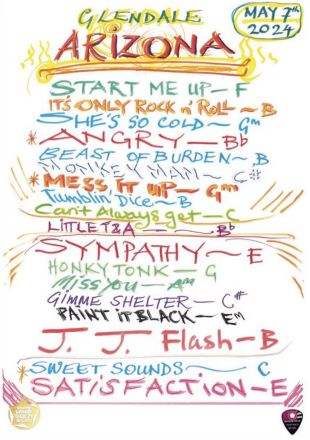 GLENDALE
ARIZONA
MAY 7th
2024
START ME UP — F
IT'S ONLY ROCK n' ROLL — B
SHE'S SO COLD — Gm
* ANGRY — Bb
BEAST OF BURDEN — B
MONKEY MAN — C#
* MESS IT UP — Gm
Tumblin' Dice — B
Can't Always get — C
LITTLE T&A — Bb
SYMPATHY — E
HONKY TONK — G
Miss You — Am
GIMME SHELTER — C#
PAINT iT BLACK — Em
J. J. Flash — B
* SWEET SOUNDS — C
SATiSFACTiON — E